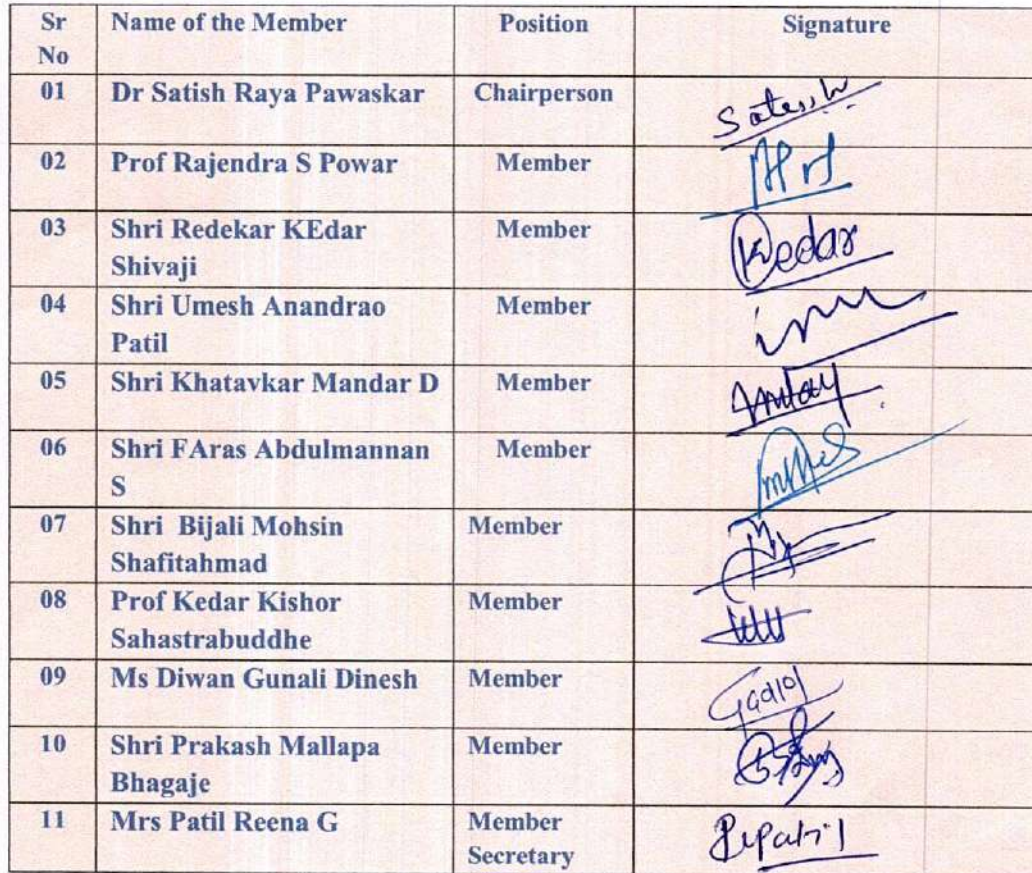 Sr No Name of the Member Position Signature
01 Dr Satish Raya Pawaskar Chairperson
02 Prof Rajendra S Powar Member
03 Shri Redekar KEdar Member Kedar
Shivaji
04 Shri Umesh Anandrao Member
Patil
05 Shri Khatavkar Mandar D Member
06 Shri FAras Abdulmannan Member
S
07 Shri Bijali Mohsin Member
Shafitahmad
08 Prof Kedar Kishor Member
Sahastrabuddhe
09 Ms Diwan Gunali Dinesh Member
10 Shri Prakash Mallapa Member
Bhagaje
11 Mrs Patil Reena G Member
Secretary